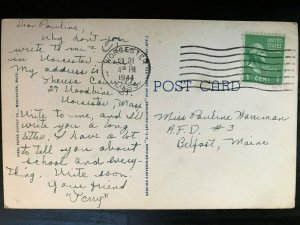 Dear Pauline,
Why don't you
write to me?
Worcester
My address is
Theresa
27 Woodbine St.
Worcester, Mass
Write to me, and I'll
write you a long
letter. I have a lot
to tell you about
school and every-
thing. Write soon.
Your friend
"Terry"
WORCESTER
JUL 31
4 PM
1944
POST CARD
1 CENT 1
Miss Pauline Harriman
R.F.D. #3
Belfast, Maine